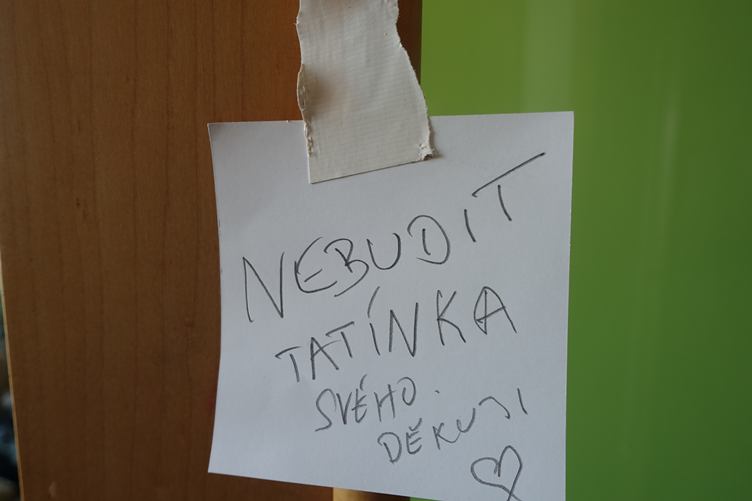 NEBUDIT
TATÍNKA
SVÉHO.
DĚKUJI